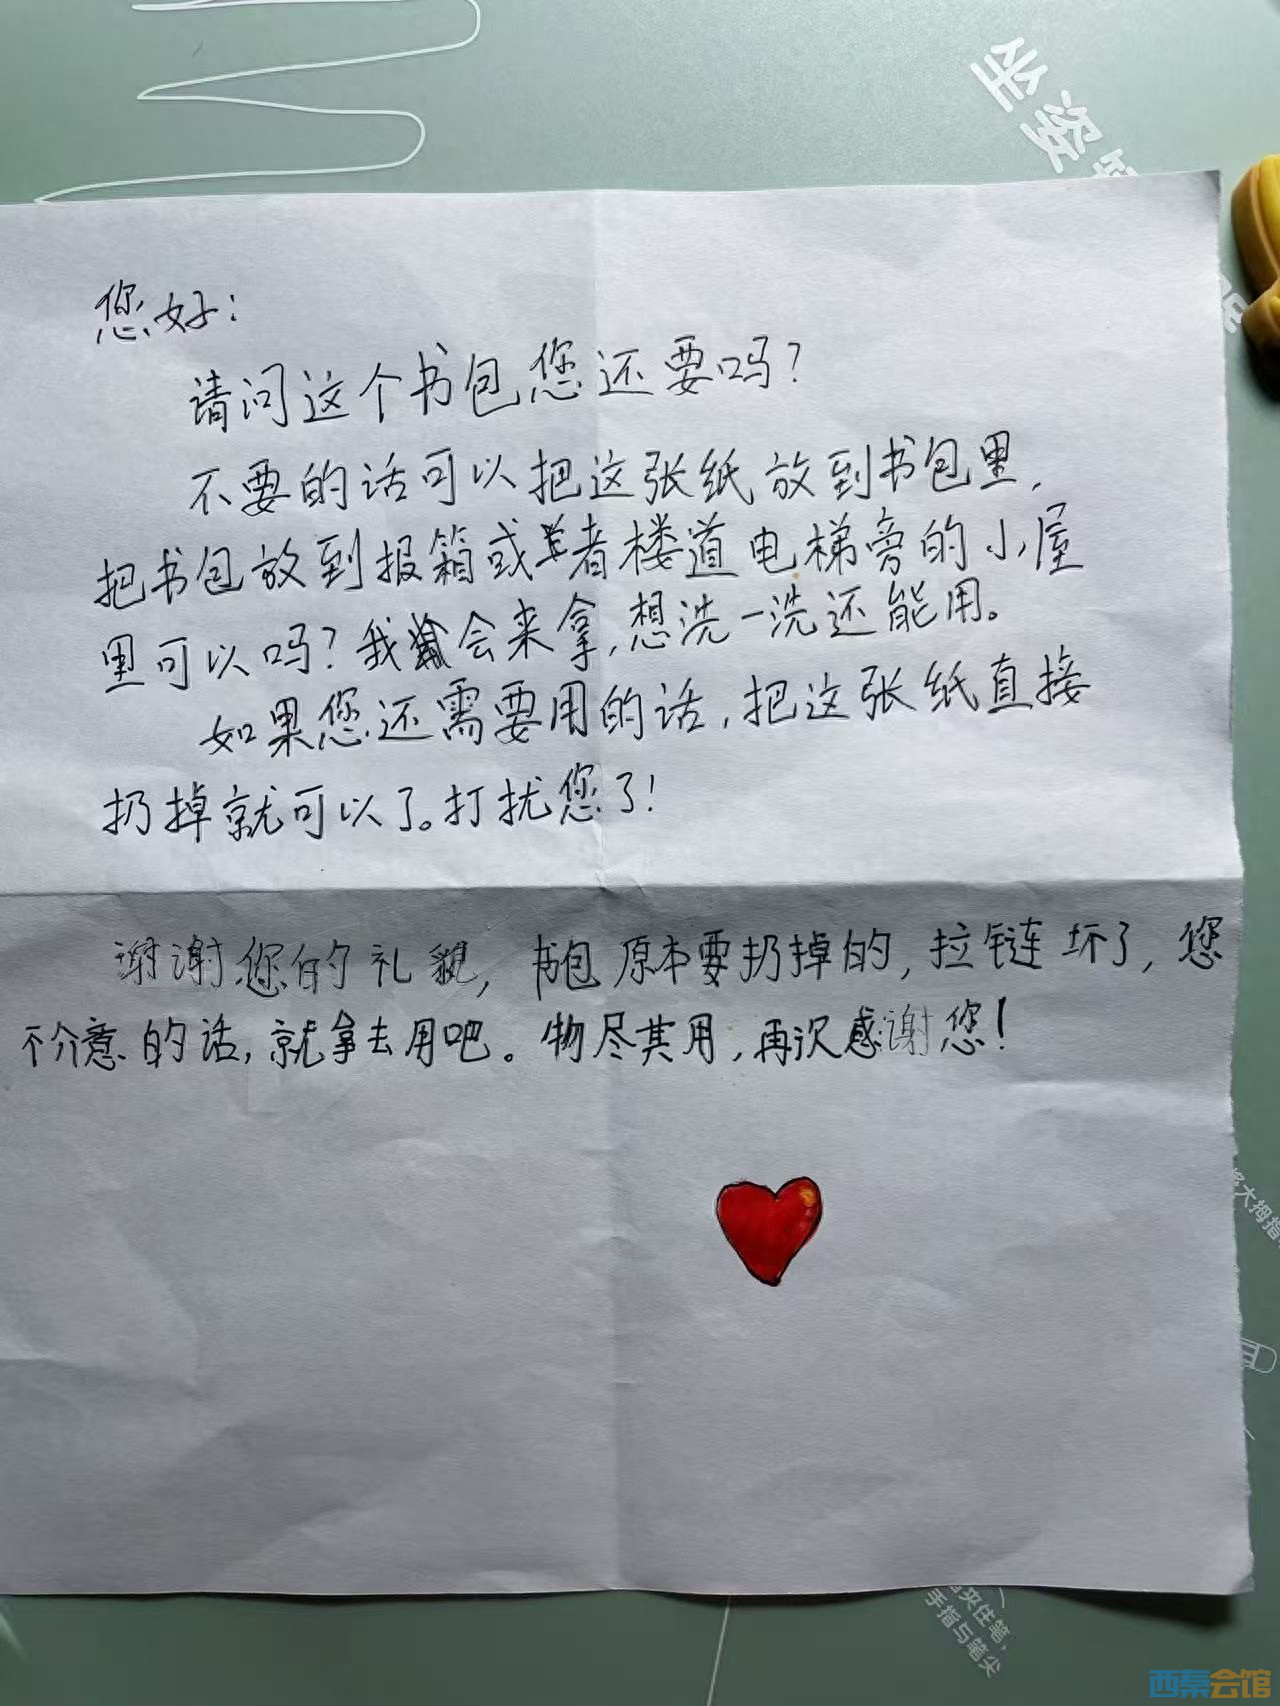 坐姿
您好：
请问这个书包您还要吗？
不要的话可以把这张纸放到书包里，
把书包放到报箱或者楼道电梯旁的小屋
里可以吗？我会来拿，想洗一洗还能用。
如果您还需要用的话，把这张纸直接
扔掉就可以了。打扰您了！
谢谢您的礼貌，书包原本要扔掉的，拉链坏了，您
不介意的话，就拿去用吧。物尽其用，再次感谢您！
大拇指
夹住笔，
手指与笔尖
西秦会馆